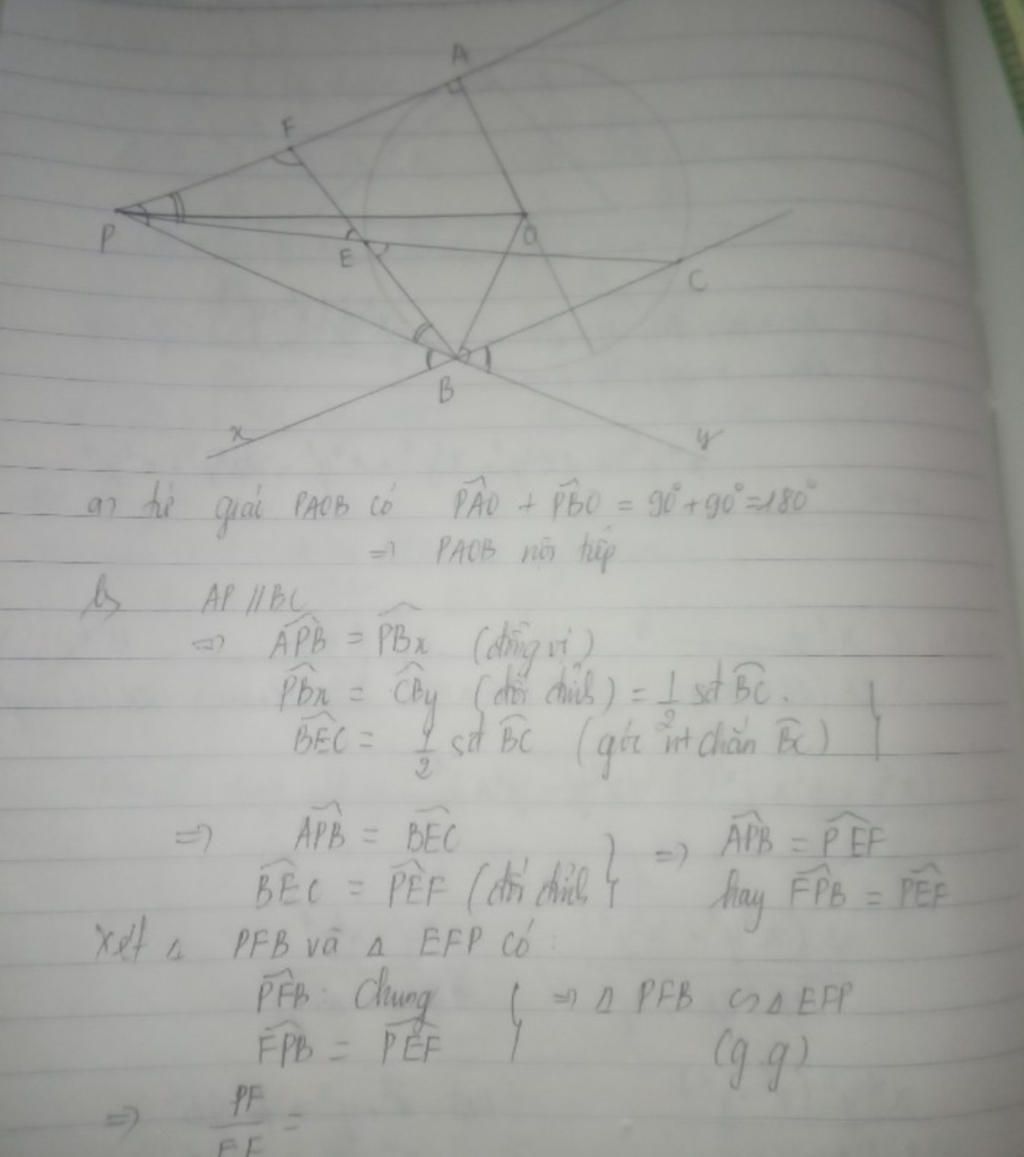 A
F
P
O
E
C
B
x
y
a, tứ giác PAOB có PAO + PBO = 90° + 90° = 180°
=> PAOB nội tiếp
b, AP // BC
=> APB = PBx (đồng vị)
PBx = CBy (đối đỉnh) = 1/2 sđ BC.
BEC = 1/2 sđ BC (góc nt chắn BC)
=> APB = BEC
BEC = PEF (đối đỉnh } => APB = PEF
hay FPB = PEF
Xét Δ PFB và Δ EFP có:
PFB: Chung } => Δ PFB ∽ Δ EFP
FPB = PEF (g.g)
=> PF/EF =